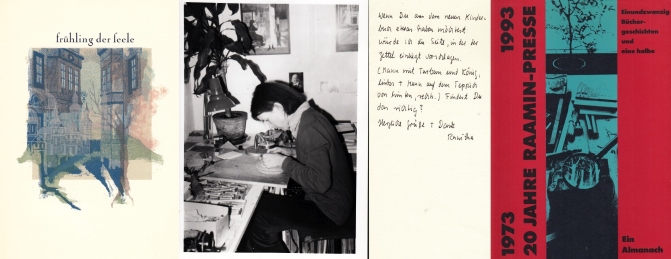 frühling der seele
Wenn Du aus dem neuen Kinder-
buch etwas haben möchtest
würde ich die Seite, in der der
Zettel einliegt vorschlagen.
(Mann mit Turban und König,
links + Mann auf dem Teppich
von hinten, rechts.) Findest Du
das richtig?
Herzliche Grüße + Dank
1973 1993
20 JAHRE RAAMIN-PRESSE
Einundzwanzig
Bücher-
geschichten
und
eine halbe
Ein
Almanach